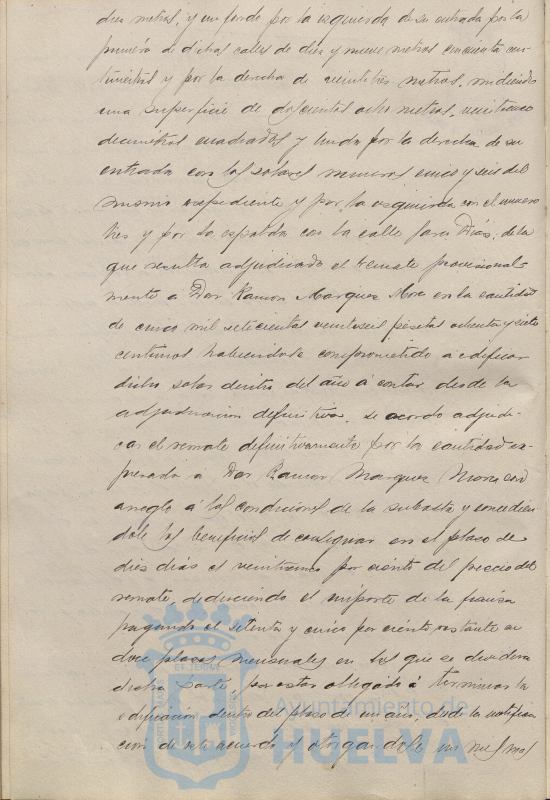 diez metros, y un fondo por la izquierda de su entrada por la
primera de dichas calles de diez y nueve metros cincuenta cen-
tímetros y por la derecha de veintitrés metros, midiendo
una superficie de doscientos ocho metros, veinticinco
decímetros cuadrados y linda por la derecha de su
entrada con los solares números cinco y seis del
mismo expediente y por la izquierda con el número
tres y por la espalda con la calle Díaz, de la
que resulta adjudicado el remate provisional-
mente a Don Ramon Marquez Mora en la cantidad
de cinco mil setecientas veintiseis pesetas ochenta y siete
centimos habiendose comprometido a edificar
dicho solar dentro del año á contar desde la
adjudicacion definitiva, se acordo adjudi-
car el remate definitivamente por la cantidad ex-
presada á Don Ramon Marquez Mora con
arreglo á las condiciones de la subasta y concedien-
dole los beneficios de consignar en el plazo de
diez dias el veinticinco por ciento del precio del
remate, deduciendo el importe de la fianza
pagando el setenta y cinco por ciento restante en
doce plazos mensuales en los que se dividirá
dicha parte, por estar obligado á terminar la
edificacion dentro del plazo de un año, desde la notifica-
cion de este acuerdo y otorgandole un mes mas
Ayuntamiento de
HUELVA